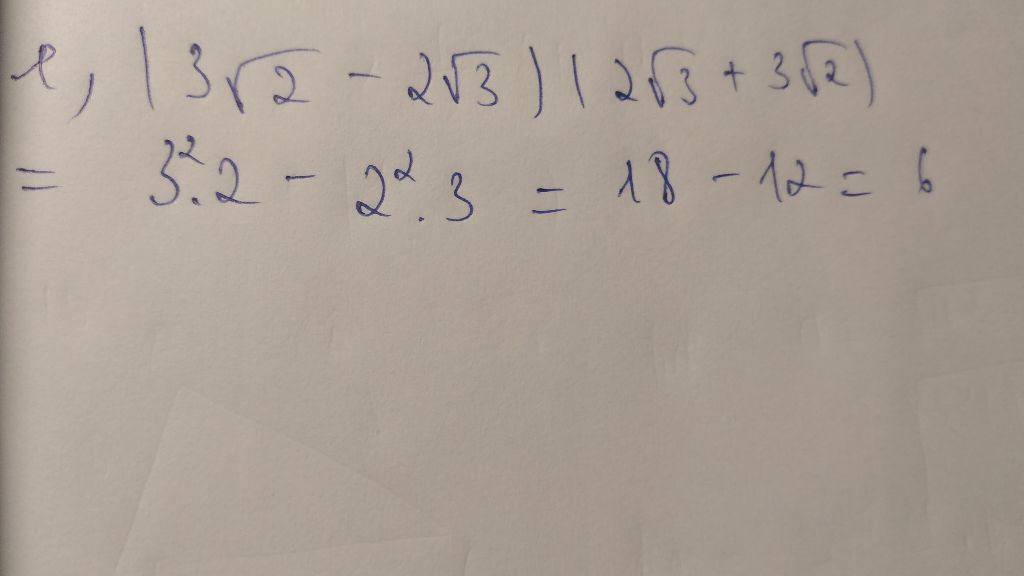 e, (3√2 - 2√3)(2√3 + 3√2)
= 3².2 - 2².3 = 18 - 12 = 6